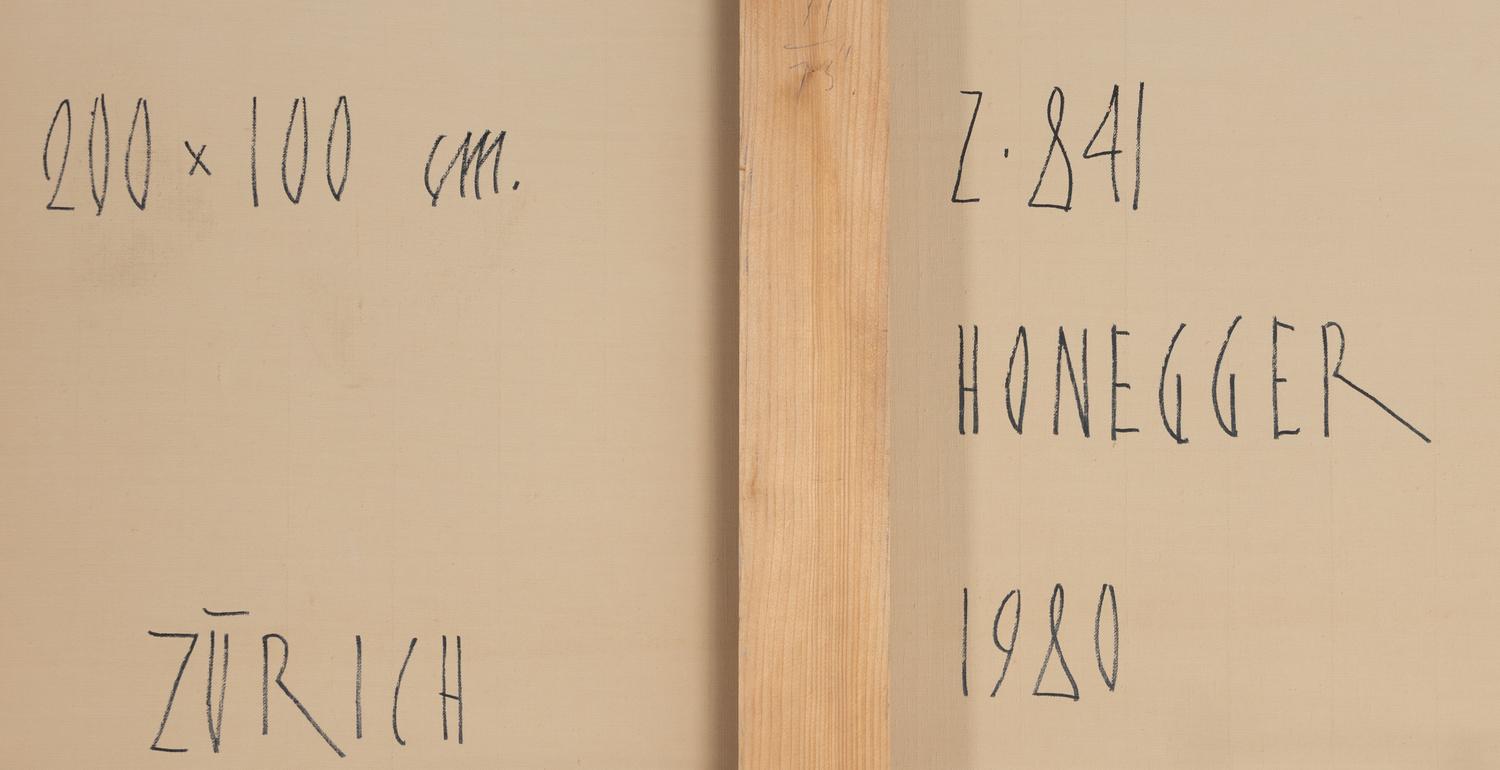 200 x 100 cm.
ZŪRICH
Z. 841
HONEGGER
1980